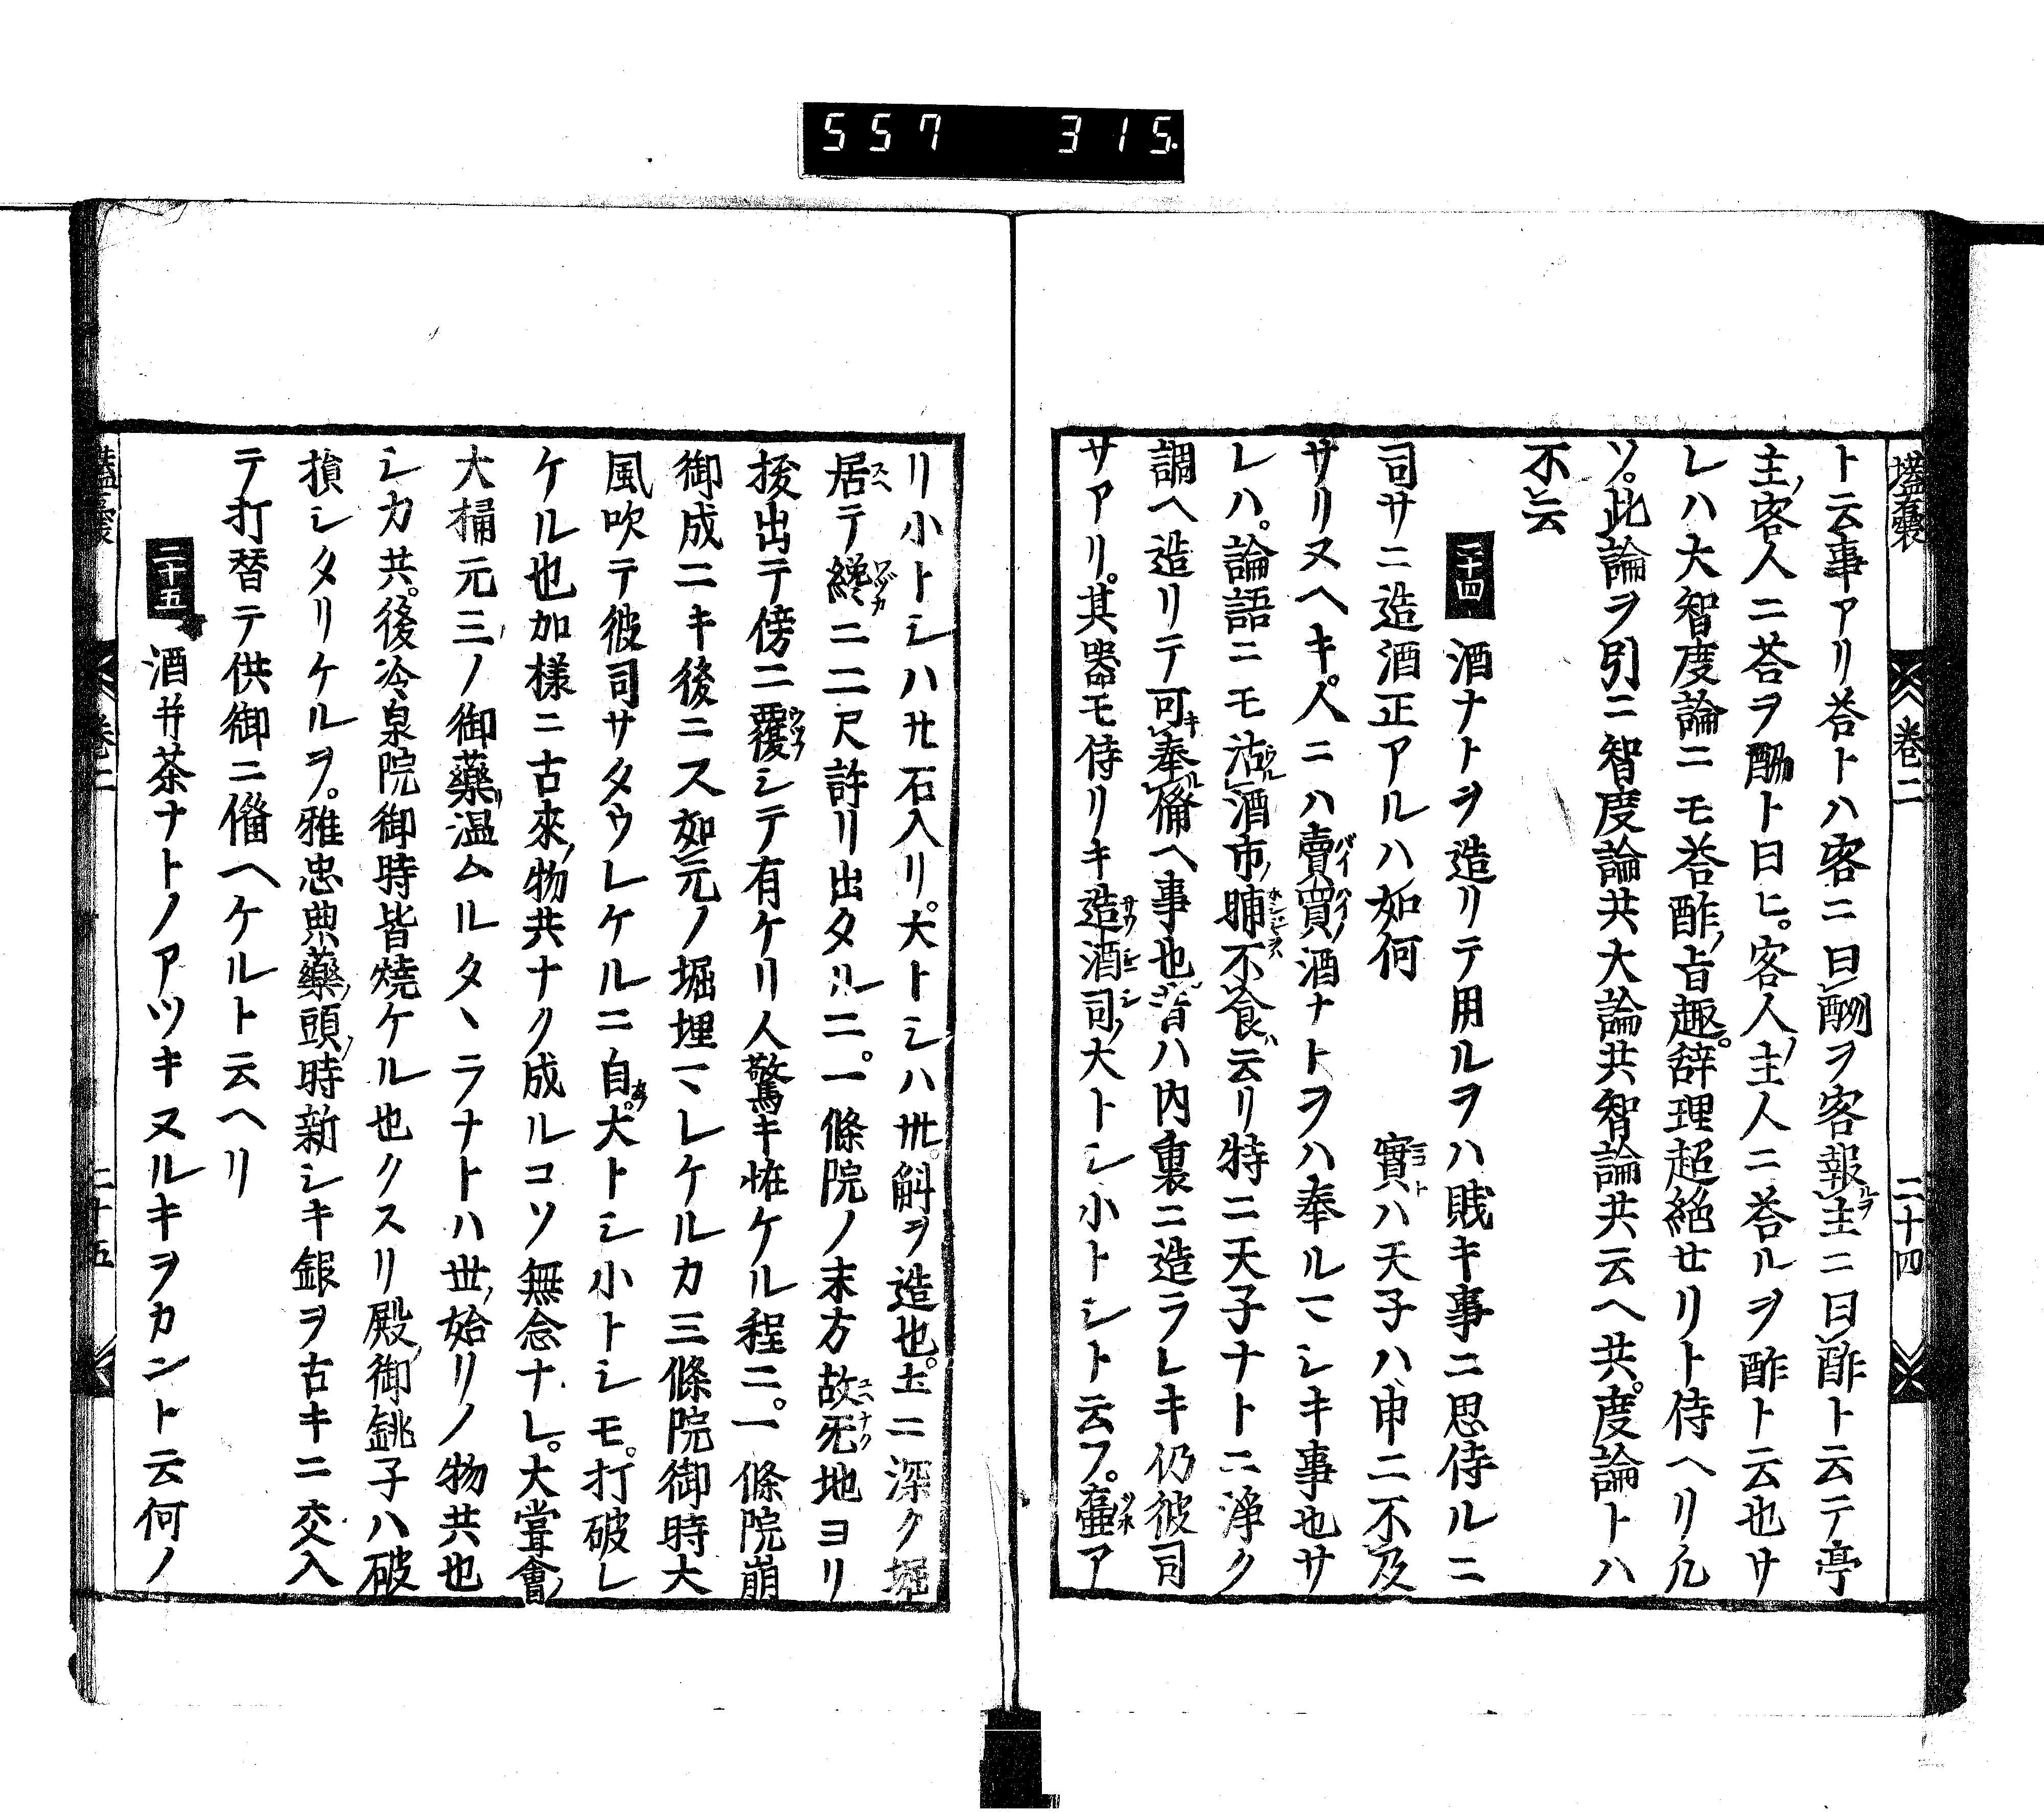 557 315.
塵囊 卷二 二十四
ト云事アリ荅トハ客ニ曰酬ヲ客報主ニ曰酢ト云テ亭
主ノ客人ニ荅ヲ酬ト曰ヒ。客人ノ主人ニ荅ルヲ酢ト云也サ
レハ大智度論ニモ荅酢ノ旨趣。辞理超絶せリト侍ヘリ凡
ソ。此論ヲ引ニ智度論共大論共智論共云ヘ共。度論トハ
不云
二十四 酒ナトヲ造リテ用ルヲハ賎キ事ニ思侍ルニ
司サニ造酒正アルハ如何 實ハ天子ハ申ニ不及
サリヌヘキ。人ニハ賣買ノ酒ナトヲハ奉ルマシキ事也サ
レハ。論語ニモ沽酒市ノ脯不食云リ特ニ天子ナトニ浄ク
調ヘ造リテ可奉備ヘ事也昔ハ内裏ニ造ラレキ仍彼司
サアリ。其器モ侍リキ造酒司ノ大トシ小トシト云フ。壷ア
リ小トシハ廿石入リ。大トシハ卅斛ヲ造也。土ニ深ク堀
居テ纔ニ二尺許リ出タルニ。一條院ノ末方故旡地ヨリ
拔出テ傍ニ覆シテ有ケリ人驚キ恠ケル程ニ。一條院崩
御成ニキ後ニス如元ノ堀埋マレケルカ三條院御時大
風吹テ彼司サタウレケルニ自。大トシ小トシモ。打破レ
ケル也加様ニ古來ノ物共ナク成ルコソ無念ナレ。大甞會ノ
大桶元三ノ御藥ノ温ムルタヽラナトハ世ノ始リノ物共也
シカ共。後冷泉院御時皆燒ケル也クスリ殿ノ御銚子ハ破
損シタリケルヲ。雅忠典藥ノ頭ノ時新シキ銀ヲ古キニ交入
テ打替テ供御ニ偹ヘケルト云ヘリ
二十五 酒并茶ナトノアツキヌルキヲカント云何ノ
卷二 二十五